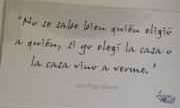 "No se sabe bien quién eligió
a quién, si yo elegí la casa o
la casa vino a verme."